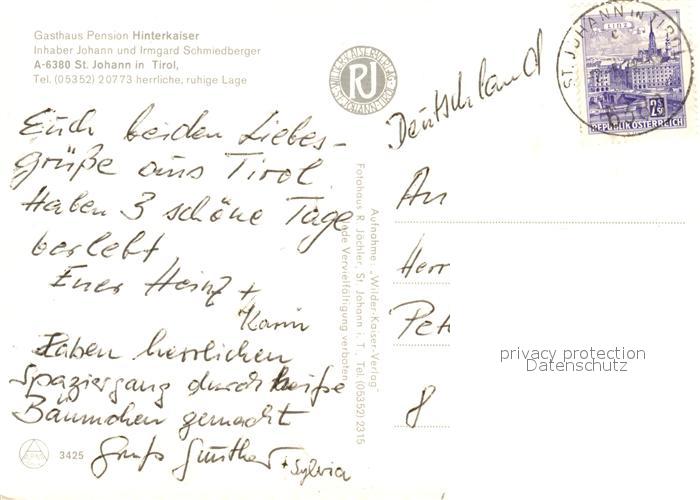 Gasthaus Pension Hinterkaiser
Inhaber Johann und Irmgard Schmiedberger
A-6380 St. Johann in Tirol,
Tel. (05352) 20773 herrliche, ruhige Lage
Euch beiden Liebes-
grüße aus Tirol.
Haben 3 schöne Tage
verlebt
Euer Heinz +
Karin
Haben herrlichen
Spaziergang durch weiße
Bäumchen gemacht
Gruß Günther + Sylvia
3425
RJ
Aufnahme: „Wilder-Kaiser-Verlag"
Fotohaus R. Jöchler, St. Johann i. T., Tel. (05352) 2315
jede Vervielfältigung verboten
Deutschland
ST. JOHANN IN TIROL
6380
LINZ
2S
REPUBLIK ÖSTERREICH
An
Herr
Pet
8
privacy protection
Datenschutz